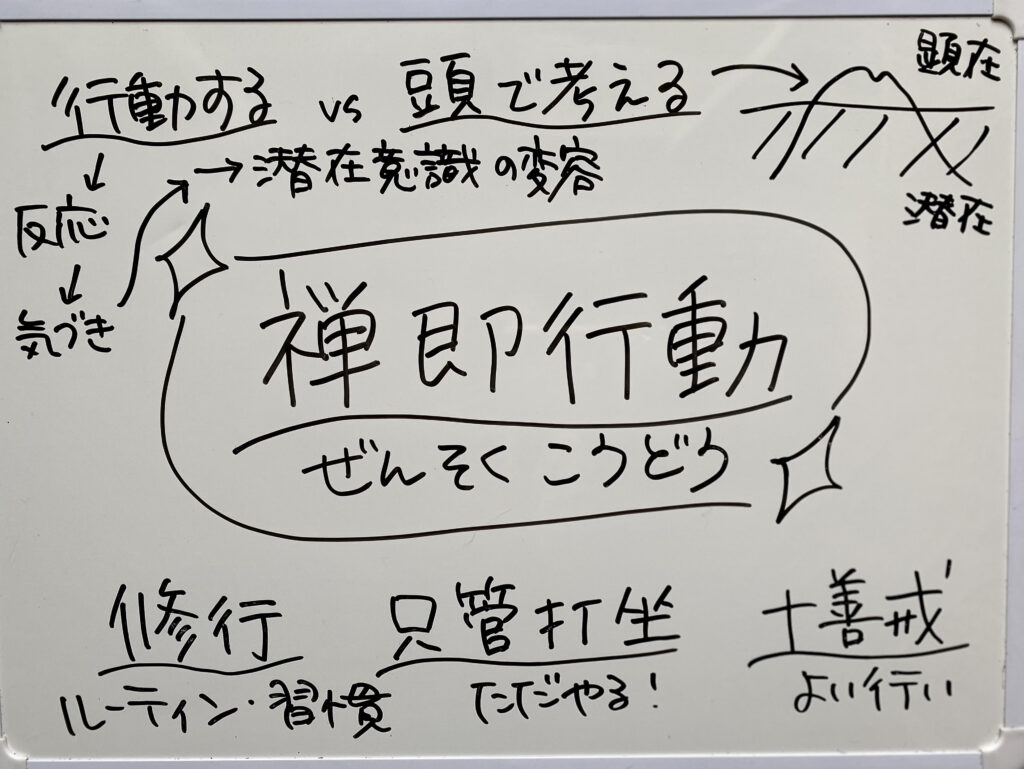 行動する vs 頭で考える
顕在
潜在
→潜在意識の変容
反応
気づき
禅即行動
ぜんそくこうどう
修行
ルーティン・習慣
只管打坐
ただやる!
十善戒
よい行い